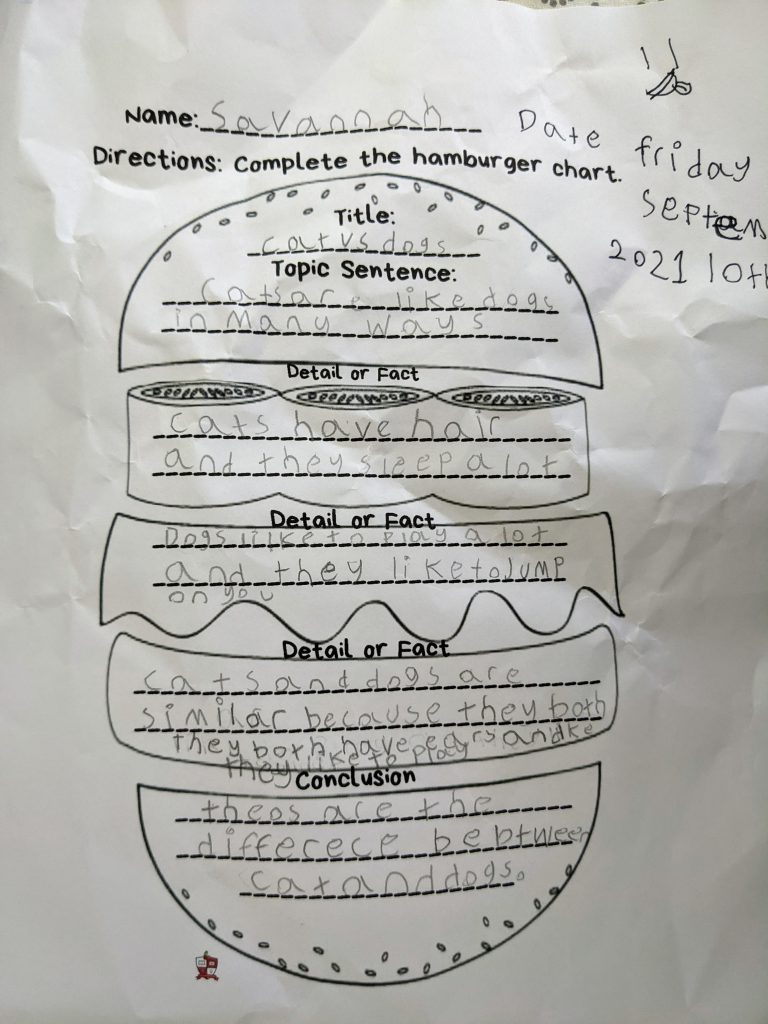 Name: Savannah
Date friday
septem
2021 10th
Directions: Complete the hamburger chart.
Title:
cat vs dogs
Topic Sentence:
Cats are like dogs
in many ways
Detail or Fact
cats have hair
and they sleep a lot
Detail or Fact
Dogs like to play a lot
and they like to jump
on you
Detail or Fact
cats and dogs are
similar because they both
they both have ears and
they like to play
Conclusion
theos are the
differece beptween
cat and dogs.